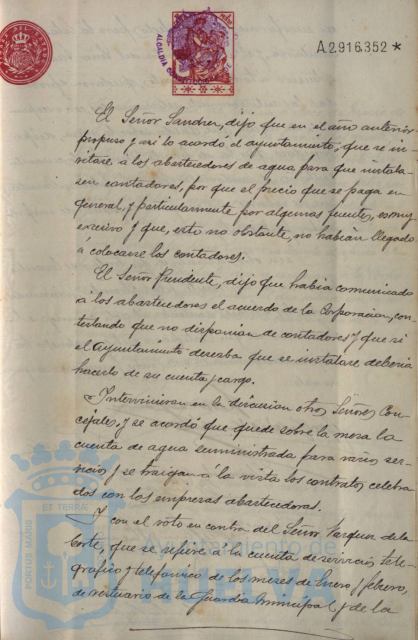 A2916352*
ALCALDIA CO
El Señor Sanchez, dijo que en el año anterior
propuso y así lo acordó el ayuntamiento, que se in-
vitare á los abastecedores de agua para que instala-
sen contadores, por que el precio que se paga en
general, y particularmente por algunas fuentes, es muy
excesivo y que, esto no obstante, no habian llegado
á colocarse los contadores.
El Señor Presidente, dijo que habia comunicado
á los abastecedores el acuerdo de la Corporacion, con-
testando que no disponian de contadores y que si
el Ayuntamiento deseaba que se instalase deberia
hacerlo de su cuenta y cargo.
Intervinieron en la discusion otros Señores Con-
cejales, y se acordó que quede sobre la mesa la
cuenta de agua suministrada para varios ser-
vicios y se traigan á la vista los contratos celebra-
dos con las empresas abastecedoras.
Y con el voto en contra del Señor Vazquez de la
Corte, que se refiere á la cuenta de servicios tele-
gráfico y telefónico de los meses de Enero y febrero,
de vestuario de la Guardia Municipal y de la
PORTUS MARIS
ET TERRAE
Ayuntamiento de
HUELVA